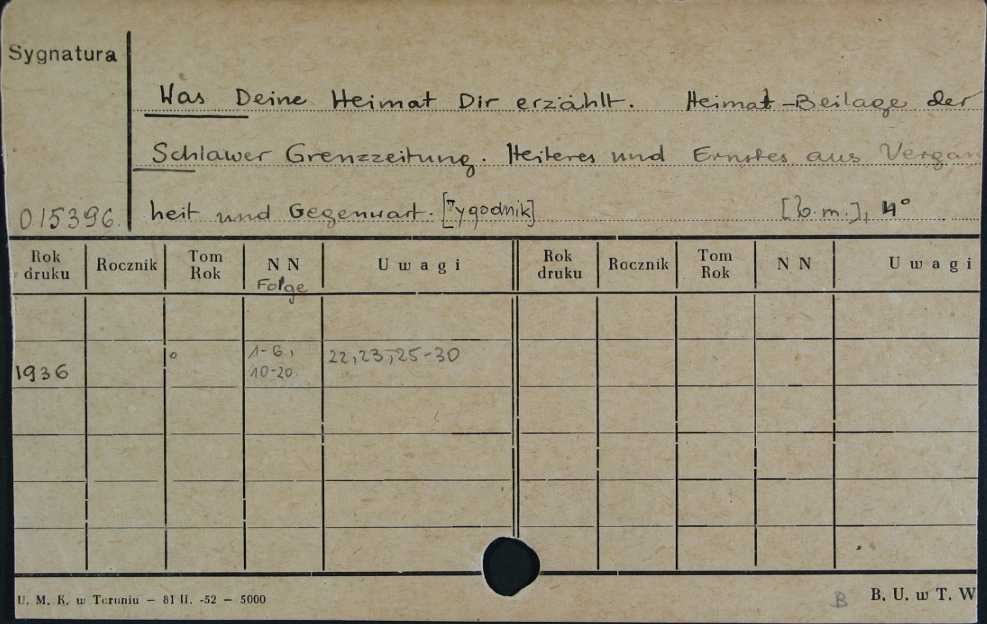 Sygnatura
Was Deine Heimat Dir erzählt. Heimat-Beilage der
Schlawer Grenzzeitung. Heiteres und Ernstes aus Vergan
015396. heit und Gegenwart. [Tygodnik] [b.m.], 4°
Rok druku Rocznik Tom Rok NN Uwagi Rok druku Rocznik Tom Rok NN Uwagi
Folge
1936 1-6, 10-20. 22,23,25-30
U. M. K. w Toruniu — 81 II. -52 — 5000
B B. U. w T. W